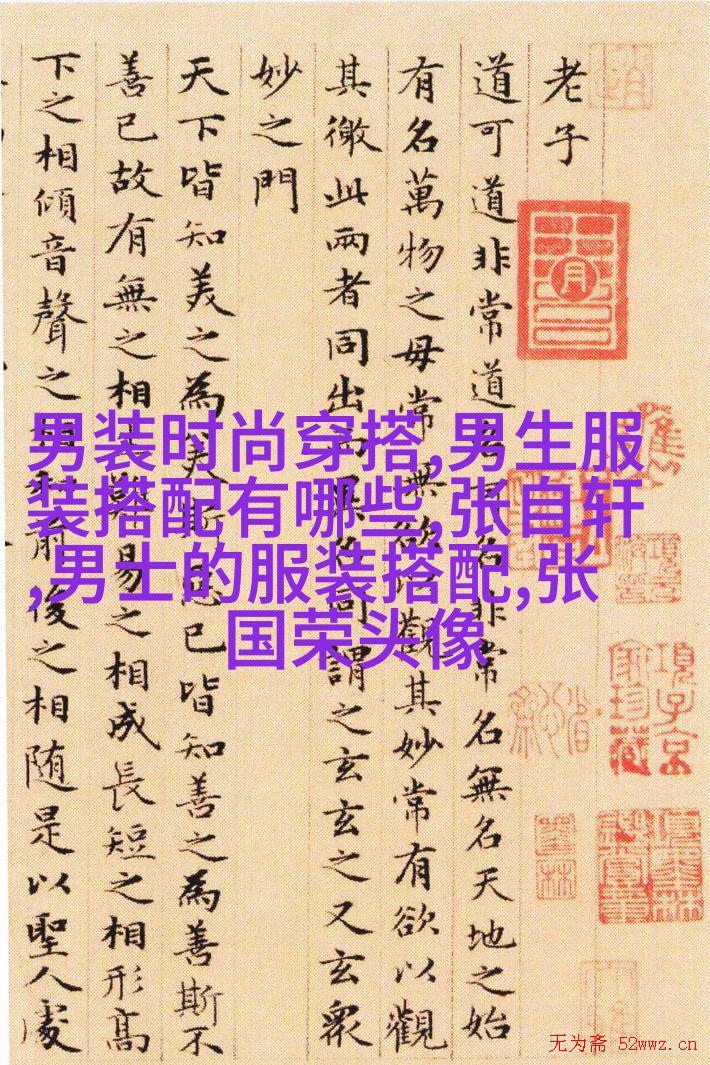 老子
道可道非常道可名非常名無名天地之始
有名萬物之母常無欲以觀其妙常有欲以觀
其徼此兩者同出而異名同謂之玄玄之又玄衆
妙之門
天下皆知美之為美斯惡已皆知善之為善斯不
善已故有無之相生難易之相成長短之相形高
下之相傾音聲之相和前後之相随是以聖人處
男装时尚穿搭,男生服
装搭配有哪些,张自轩
,男士的服装搭配,张
国荣头像
项子京
家珍藏
无为斋 52wwz.cn